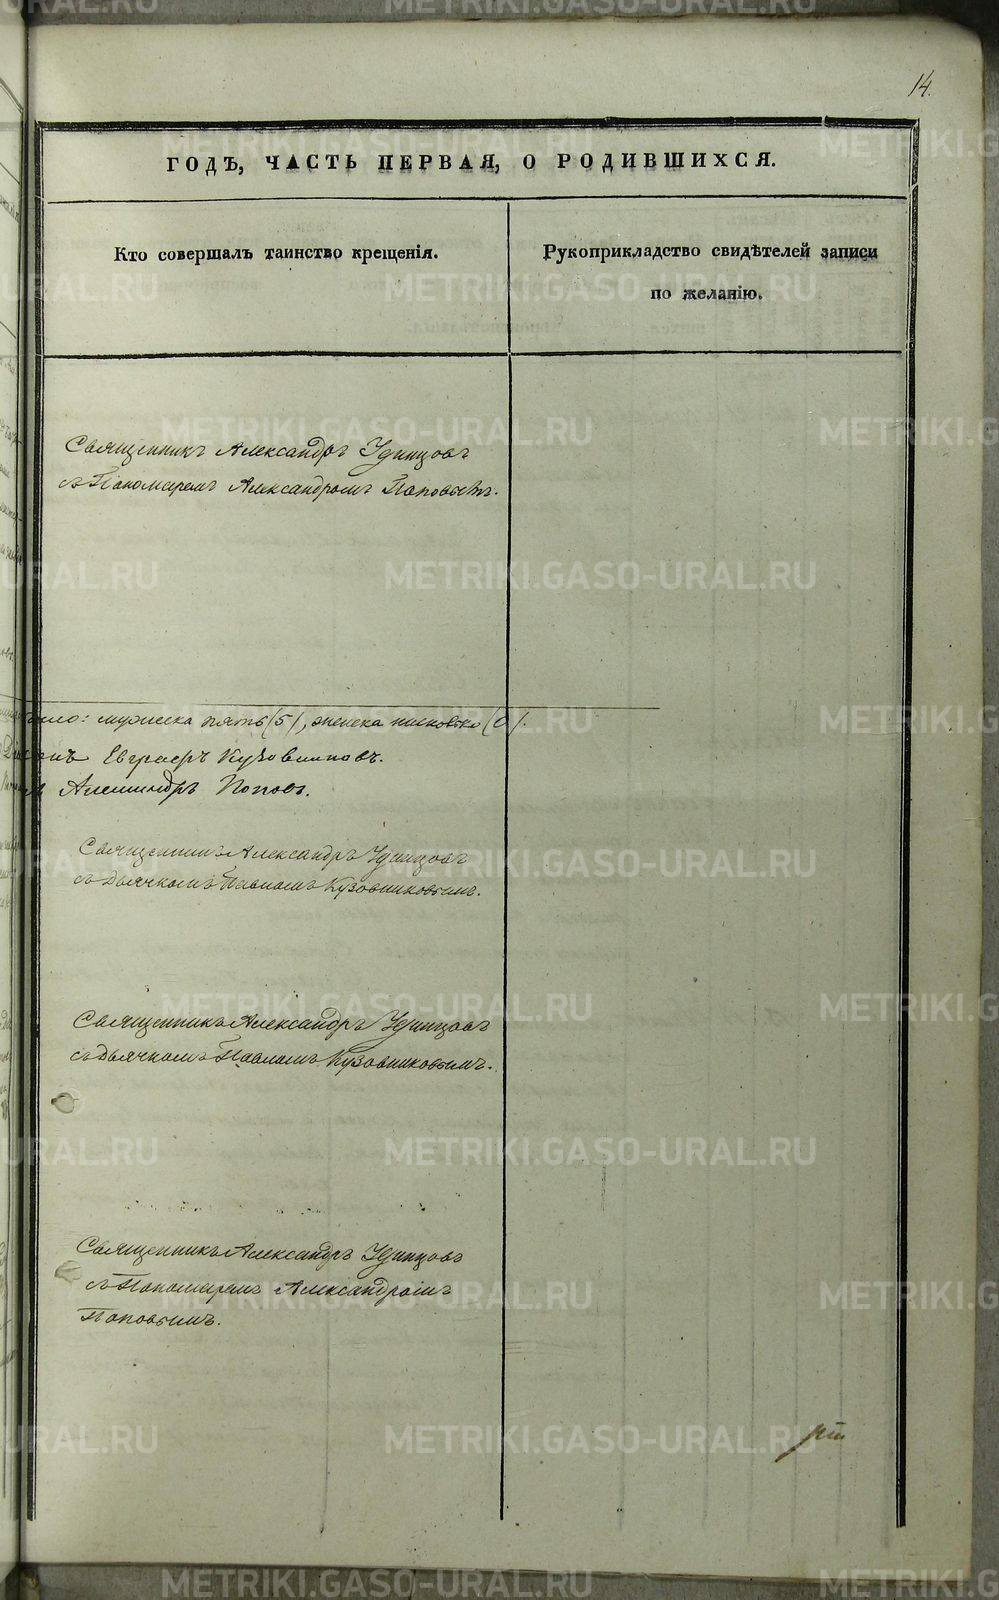 14.
ГОДЪ, ЧАСТЬ ПЕРВАЯ, О РОДИВШИХСЯ.
Кто совершалъ таинство крещенія.
Рукоприкладство свидѣтелей записи
по желанію.
Священникъ Александръ Удинцовъ
съ Пономаремъ Александромъ Поповымъ.
было: мужеска пять (5), женска нисколько (0).
Евграфъ Кузовниковъ.
Александръ Поповъ.
Священникъ Александръ Удинцовъ
съ Дьячкомъ Павломъ Кузовниковымъ.
Священникъ Александръ Удинцовъ
съ Дьячкомъ Павломъ Кузовниковымъ.
Священникъ Александръ Удинцовъ
съ Пономаремъ Александромъ
Поповымъ.
METRIKI.GASO-URAL.RU